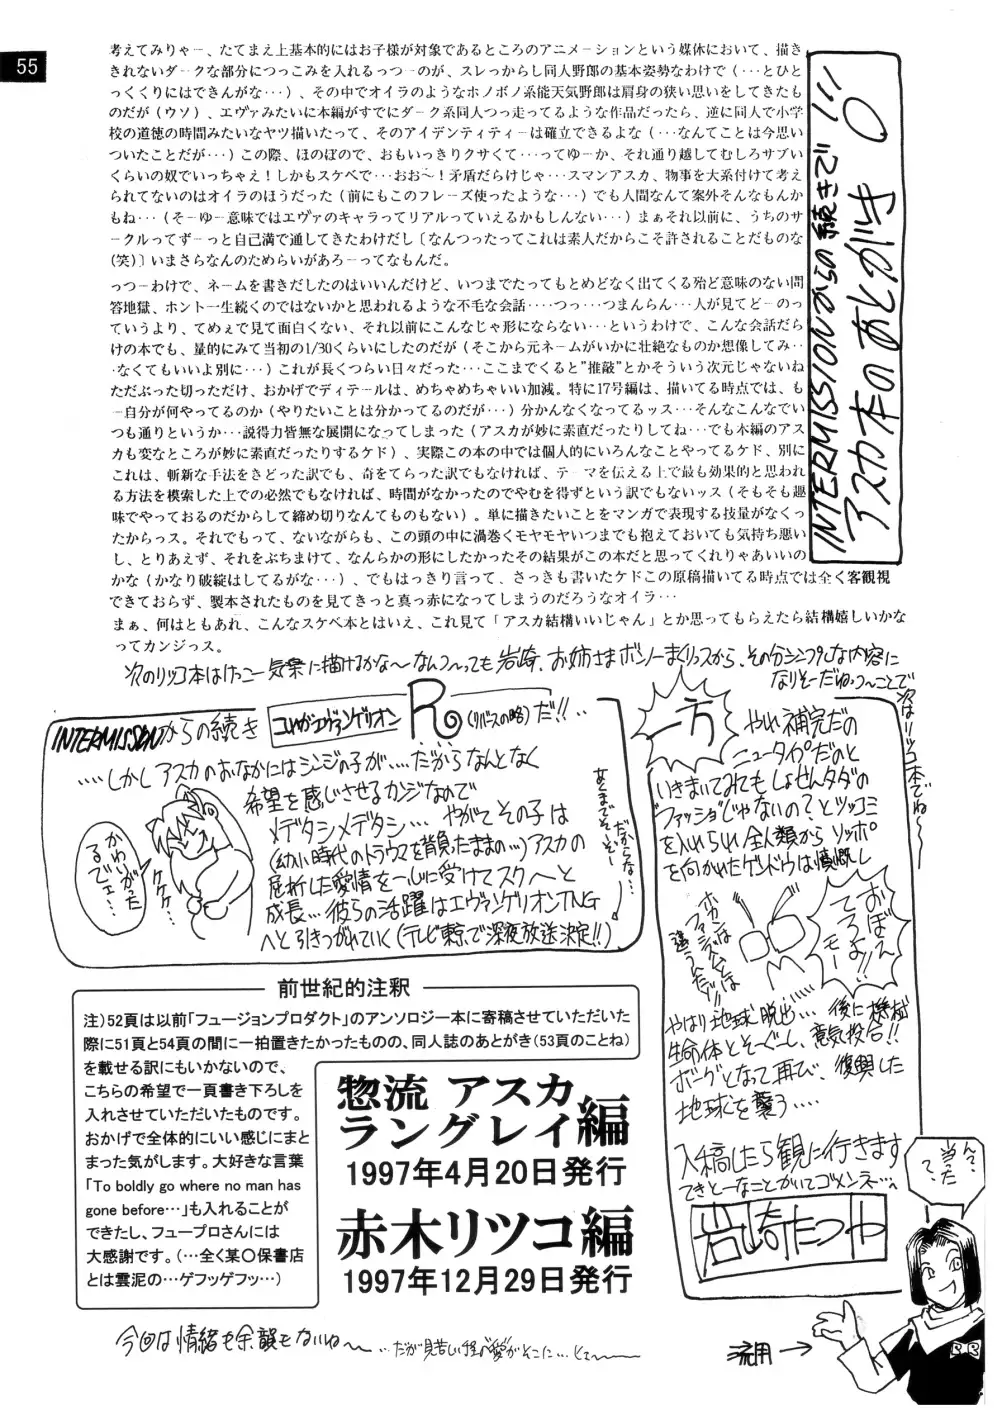 55
INTERMISSIONからの続きで
アスカ本のあとがき
考えてみりゃー、たてまえ上基本的にはお子様が対象であるところのアニメーションという媒体において、描き
きれないダークな部分につっこみを入れるっつーのが、スレっからし同人野郎の基本姿勢なわけで(･･･とひと
っくくりにはできんがな･･･)、その中でオイラのようなホノボノ系能天気野郎は肩身の狭い思いをしてきたも
のだが(ウソ)、エヴァみたいに本編がすでにダーク系同人つっ走ってるような作品だったら、逆に同人で小学
校の道徳の時間みたいなヤツ描いたって、そのアイデンティティーは確立できるよな(･･･なんてことは今思い
ついたことだが･･･)この際、ほのぼので、おもいっきりクサくて･･･ってゆーか、それ通り越してむしろサブい
くらいの奴でいっちゃえ！しかもスケベで･･･おお～！矛盾だらけじゃ･･･スマンアスカ、物事を大系付けて考え
られてないのはオイラのほうだった(前にもこのフレーズ使ったような･･･)でも人間なんて案外そんなもんか
もね･･･(そーゆー意味ではエヴァのキャラってリアルっていえるかもしんない･･･)まぁそれ以前に、うちのサ
ークルってずーっと自己満で通してきたわけだし〔なんつったってこれは素人だからこそ許されることだものな
(笑)〕いまさらなんのためらいがあろーってなもんだ。
っつーわけで、ネームを書きだしたのはいいんだけど、いつまでたってもとめどなく出てくる殆ど意味のない問
答地獄、ホント一生続くのではないかと思われるような不毛な会話････つっ･･･つまんらん･･･人が見てどーのっ
ていうより、てめぇで見て面白くない、それ以前にこんなじゃ形にならない･･･というわけで、こんな会話だら
けの本でも、量的にみて当初の1/30くらいにしたのだが(そこから元ネームがいかに壮絶なものか想像してみ･･
･なくてもいいよ別に･･･)これが長くつらい日々だった･･･ここまでくると"推敲"とかそういう次元じゃないね
ただぶった切っただけ、おかげでディテールは、めちゃめちゃいい加減。特に17号編は、描いてる時点では、も
ー自分が何やってるのか(やりたいことは分かってるのだが･･･)分かんなくなってるッス･･･そんなこんなでい
つも通りというか･･･説得力皆無な展開になってしまった(アスカが妙に素直だったりしてね･･･でも本編のアス
カも変なところが妙に素直だったりするケド)、実際この本の中では個人的にいろんなことやってるケド、別に
これは、斬新な手法をきどった訳でも、奇をてらった訳でもなければ、テーマを伝える上で最も効果的と思われ
る方法を模索した上での必然でもなければ、時間がなかったのでやむを得ずという訳でもないッス(そもそも趣
味でやっておるのだからして締め切りなんてものもない)。単に描きたいことをマンガで表現する技量がなくっ
たからっス。それでもって、ないながらも、この頭の中に渦巻くモヤモヤいつまでも抱えておいても気持ち悪い
し、とりあえず、それをぶちまけて、なんらかの形にしたかったその結果がこの本だと思ってくれりゃあいいの
かな(かなり破綻はしてるがな･･･)、でもはっきり言って、さっきも書いたケドこの原稿描いてる時点では全く客観視
できておらず、製本されたものを見てきっと真っ赤になってしまうのだろうなオイラ･･･
まぁ、何はともあれ、こんなスケベ本とはいえ、これ見て「アスカ結構いいじゃん」とか思ってもらえたら結構嬉しいかな
ってカンジっス。
次のリツコ本はけっこー気楽に描けるかな～なんつ～っても岩崎、お姉さまボンノーまくりっスから、その分シンプルな内容に
なりそーだねっつーことで
次はリツコ本でね～
INTERMISSIONからの続き
コレがエヴァンゲリオン R(リバースの略)だ!!･･
････しかしアスカのおなかにはシンジの子が････だからなんとなく
希望を感じさせるカンジなので
メデタシメデタシ･･･やがてその子は
(幼い時代のトラウマを背負ったままの･･･)アスカの
屈折した愛情を一心に受けてスクスクと
成長･･･彼らの活躍はエヴァンゲリオンTNG
へと引きつがれていく(テレビ東京で深夜放送決定!!)
だからな･･･
あくまでそーぞー
かわいがった
るでェ･･･
ケケケ･･･
一方
やれ補完だの
ニュータイプだのと
いきまいてみてもしょせんタダの
ファッショじゃないの？とツッコミ
を入れられ全人類からソッポ
を向かれたゲンドウは憤慨し
おぼえ
てろよ!!
モー
ボカンファシズムとは
違うんだゾ!!
やはり地球脱出････後に機械
生命体とそーぐーし、意気投合!!
ボーグとなって再び、復興した
地球を襲う････
入稿したら観に行きます
てきとーなことかいてゴメンネ･･･
岩崎たつや
前世紀的注釈
注）52頁は以前「フュージョンプロダクト」のアンソロジー本に寄稿させていただいた
際に51頁と54頁の間に一拍置きたかったものの、同人誌のあとがき（53頁のことね）
を載せる訳にもいかないので、
こちらの希望で一頁書き下ろしを
入れさせていただいたものです。
おかげで全体的にいい感じにまと
まった気がします。大好きな言葉
「To boldly go where no man has
gone before…」も入れることが
できたし、フュープロさんには
大感謝です。（…全く某〇保書店
とは雲泥の…ゲフッゲフッ…）
惣流 アスカ
ラングレイ編
1997年4月20日発行
赤木リツコ編
1997年12月29日発行
今回は情緒も余韻もないね～
流用→